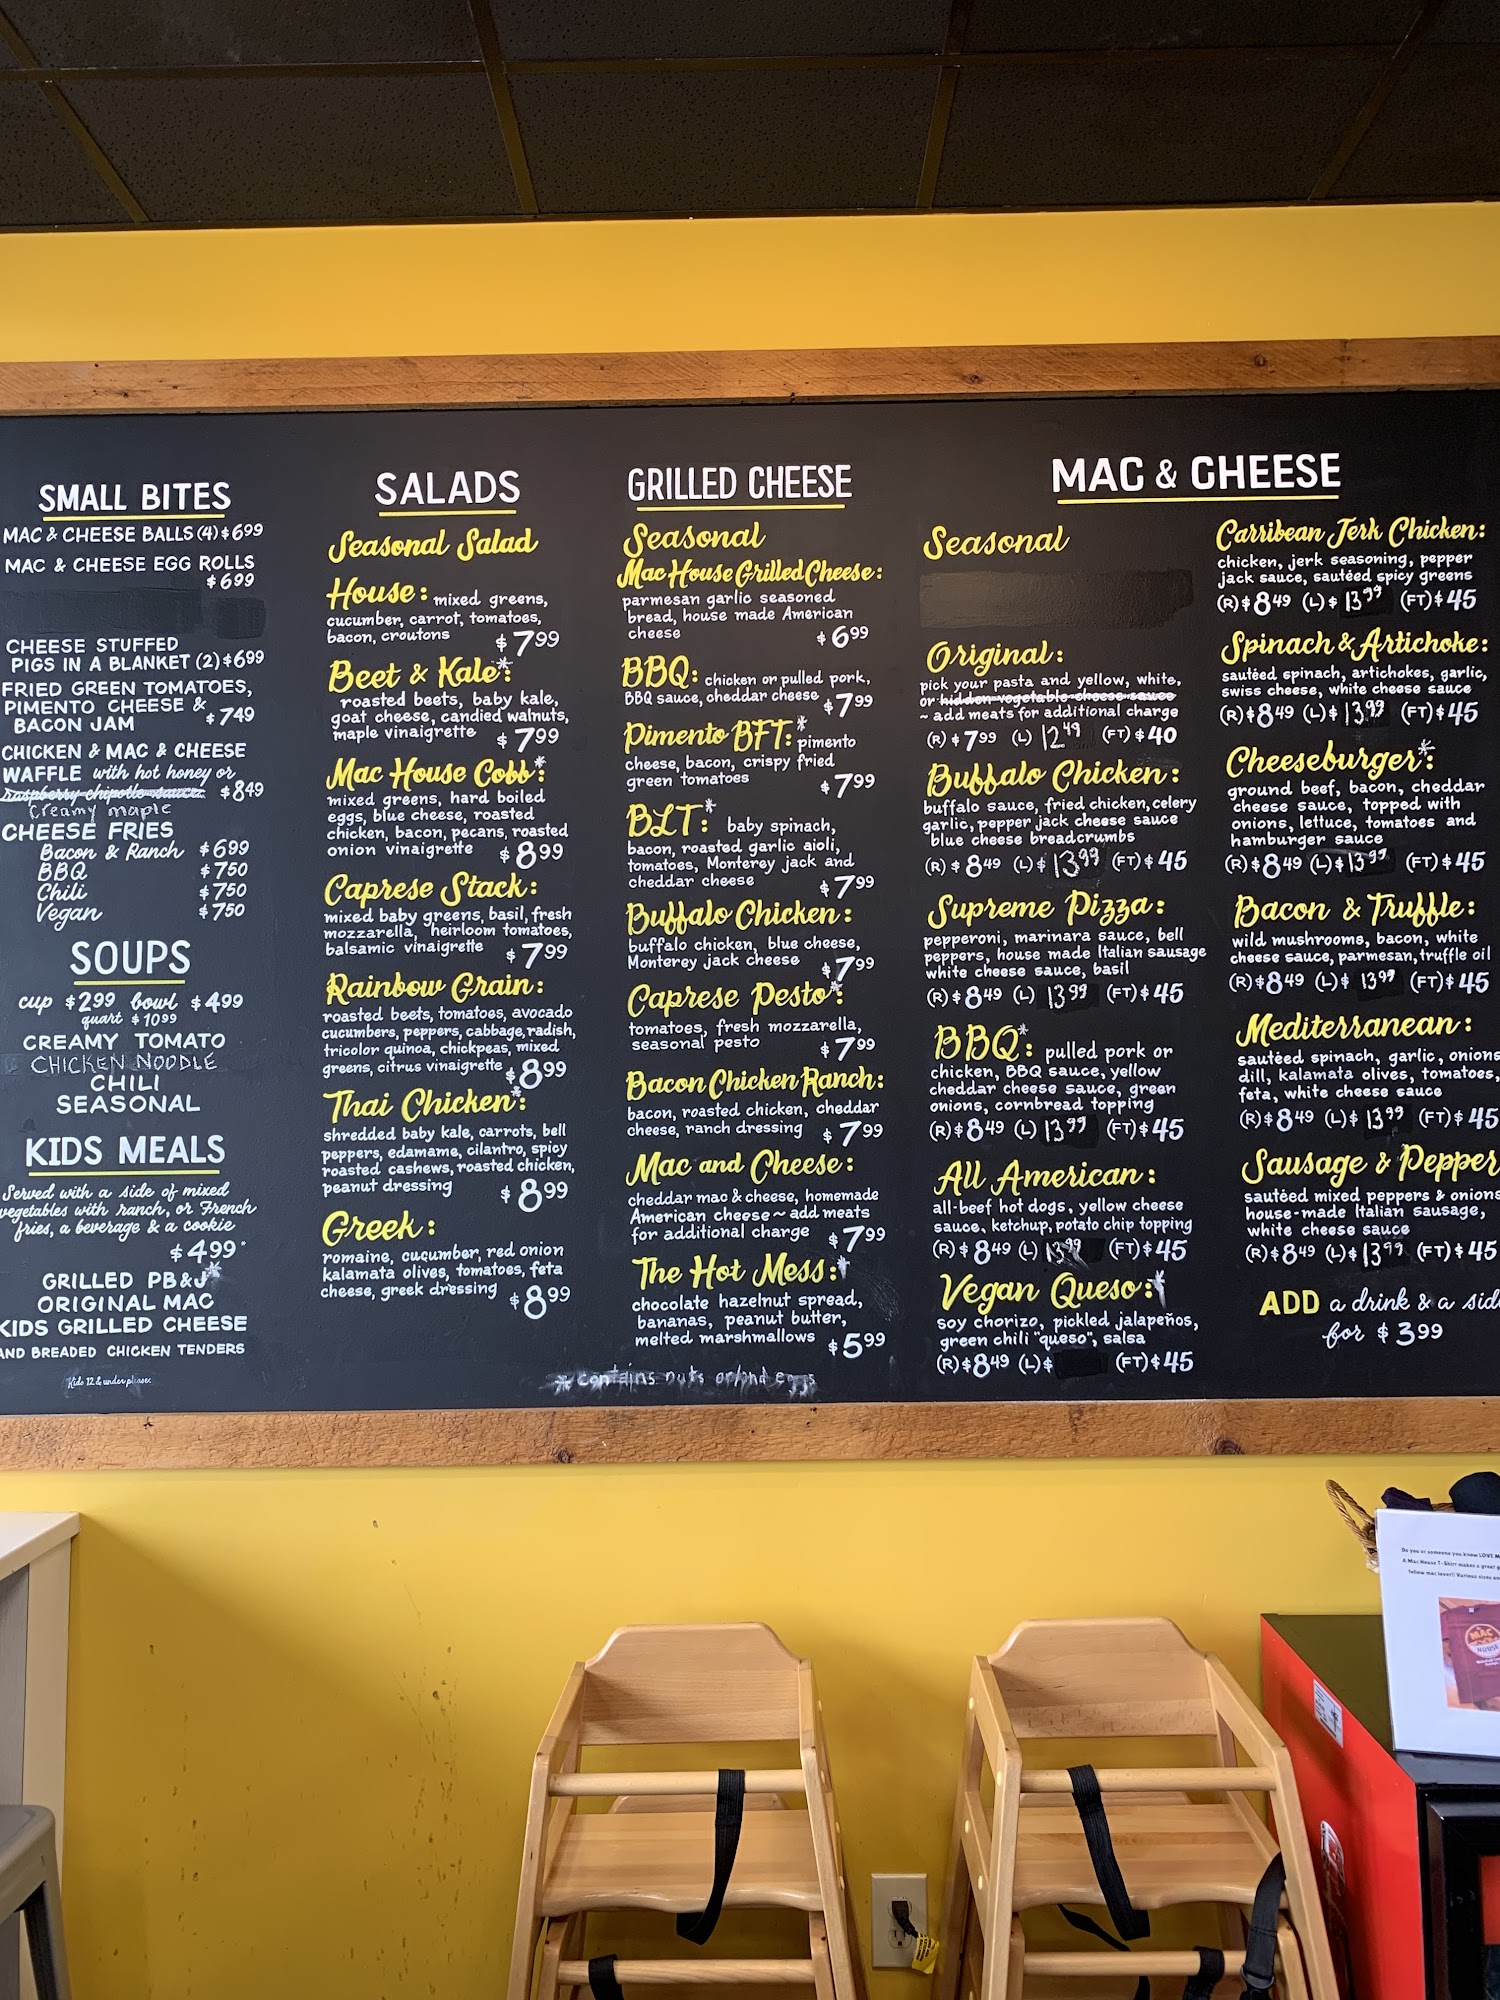 SMALL BITES
MAC & CHEESE BALLS (4) $6.99
MAC & CHEESE EGG ROLLS
$6.99
CHEESE STUFFED
PIGS IN A BLANKET (2) $6.99
FRIED GREEN TOMATOES,
PIMENTO CHEESE &
BACON JAM $7.49
CHICKEN & MAC & CHEESE
WAFFLE with hot honey or
raspberry chipotle sauce $8.49
Creamy maple
CHEESE FRIES
Bacon & Ranch $6.99
BBQ $7.50
Chili $7.50
Vegan $7.50
SOUPS
cup $2.99 bowl $4.99
quart $10.99
CREAMY TOMATO
CHICKEN NOODLE
CHILI
SEASONAL
KIDS MEALS
Served with a side of mixed
vegetables with ranch, or French
fries, a beverage & a cookie
$4.99*
GRILLED PB&J*
ORIGINAL MAC
KIDS GRILLED CHEESE
HAND BREADED CHICKEN TENDERS
Kids 12 & under please.
SALADS
Seasonal Salad
House: mixed greens,
cucumber, carrot, tomatoes,
bacon, croutons $7.99
Beet & Kale*:
roasted beets, baby kale,
goat cheese, candied walnuts,
maple vinaigrette $7.99
Mac House Cobb*:
mixed greens, hard boiled
eggs, blue cheese, roasted
chicken, bacon, pecans, roasted
onion vinaigrette $8.99
Caprese Stack:
mixed baby greens, basil, fresh
mozzarella, heirloom tomatoes,
balsamic vinaigrette $7.99
Rainbow Grain:
roasted beets, tomatoes, avocado
cucumbers, peppers, cabbage, radish,
tricolor quinoa, chickpeas, mixed
greens, citrus vinaigrette $8.99
Thai Chicken*:
shredded baby kale, carrots, bell
peppers, edamame, cilantro, spicy
roasted cashews, roasted chicken,
peanut dressing $8.99
Greek:
romaine, cucumber, red onion
kalamata olives, tomatoes, feta
cheese, greek dressing $8.99
GRILLED CHEESE
Seasonal
Mac House Grilled Cheese:
parmesan garlic seasoned
bread, house made American
cheese $6.99
BBQ: chicken or pulled pork,
BBQ sauce, cheddar cheese $7.99
Pimento BFT:* pimento
cheese, bacon, crispy fried
green tomatoes $7.99
BLT:* baby spinach,
bacon, roasted garlic aioli,
tomatoes, Monterey jack and
cheddar cheese $7.99
Buffalo Chicken:
buffalo chicken, blue cheese,
Monterey jack cheese $7.99
Caprese Pesto*:
tomatoes, fresh mozzarella,
seasonal pesto $7.99
Bacon Chicken Ranch:
bacon, roasted chicken, cheddar
cheese, ranch dressing $7.99
Mac and Cheese:
cheddar mac & cheese, homemade
American cheese ~ add meats
for additional charge $7.99
The Hot Mess:*
chocolate hazelnut spread,
bananas, peanut butter,
melted marshmallows $5.99
* contains nuts or/and eggs
MAC & CHEESE
Seasonal
Original:
pick your pasta and yellow, white,
or hidden vegetable cheese sauce
~ add meats for additional charge
(R) $7.99 (L) 12.49 (FT) $40
Buffalo Chicken:
buffalo sauce, fried chicken, celery
garlic, pepper jack cheese sauce
blue cheese breadcrumbs
(R) $8.49 (L) $13.99 (FT) $45
Supreme Pizza:
pepperoni, marinara sauce, bell
peppers, house made Italian sausage
white cheese sauce, basil
(R) $8.49 (L) 13.99 (FT) $45
BBQ*: pulled pork or
chicken, BBQ sauce, yellow
cheddar cheese sauce, green
onions, cornbread topping
(R) $8.49 (L) 13.99 (FT) $45
All American:
all-beef hot dogs, yellow cheese
sauce, ketchup, potato chip topping
(R) $8.49 (L) 13.99 (FT) $45
Vegan Queso:*
soy chorizo, pickled jalapeños,
green chili "queso", salsa
(R) $8.49 (L) $ (FT) $45
Carribean Jerk Chicken:
chicken, jerk seasoning, pepper
jack sauce, sautéed spicy greens
(R) $8.49 (L) $13.99 (FT) $45
Spinach & Artichoke:
sautéed spinach, artichokes, garlic,
swiss cheese, white cheese sauce
(R) $8.49 (L) $13.99 (FT) $45
Cheeseburger*:
ground beef, bacon, cheddar
cheese sauce, topped with
onions, lettuce, tomatoes and
hamburger sauce
(R) $8.49 (L) $13.99 (FT) $45
Bacon & Truffle:
wild mushrooms, bacon, white
cheese sauce, parmesan, truffle oil
(R) $8.49 (L) $13.99 (FT) $45
Mediterranean:
sautéed spinach, garlic, onions
dill, kalamata olives, tomatoes,
feta, white cheese sauce
(R) $8.49 (L) $13.99 (FT) $45
Sausage & Pepper
sautéed mixed peppers & onions
house-made Italian sausage,
white cheese sauce
(R) $8.49 (L) $13.99 (FT) $45
ADD a drink & a side
for $3.99
Do you or someone you know LOVE M
A Mac House T-Shirt makes a great g
fellow mac lover!! Various sizes an
MAC
HOUSE